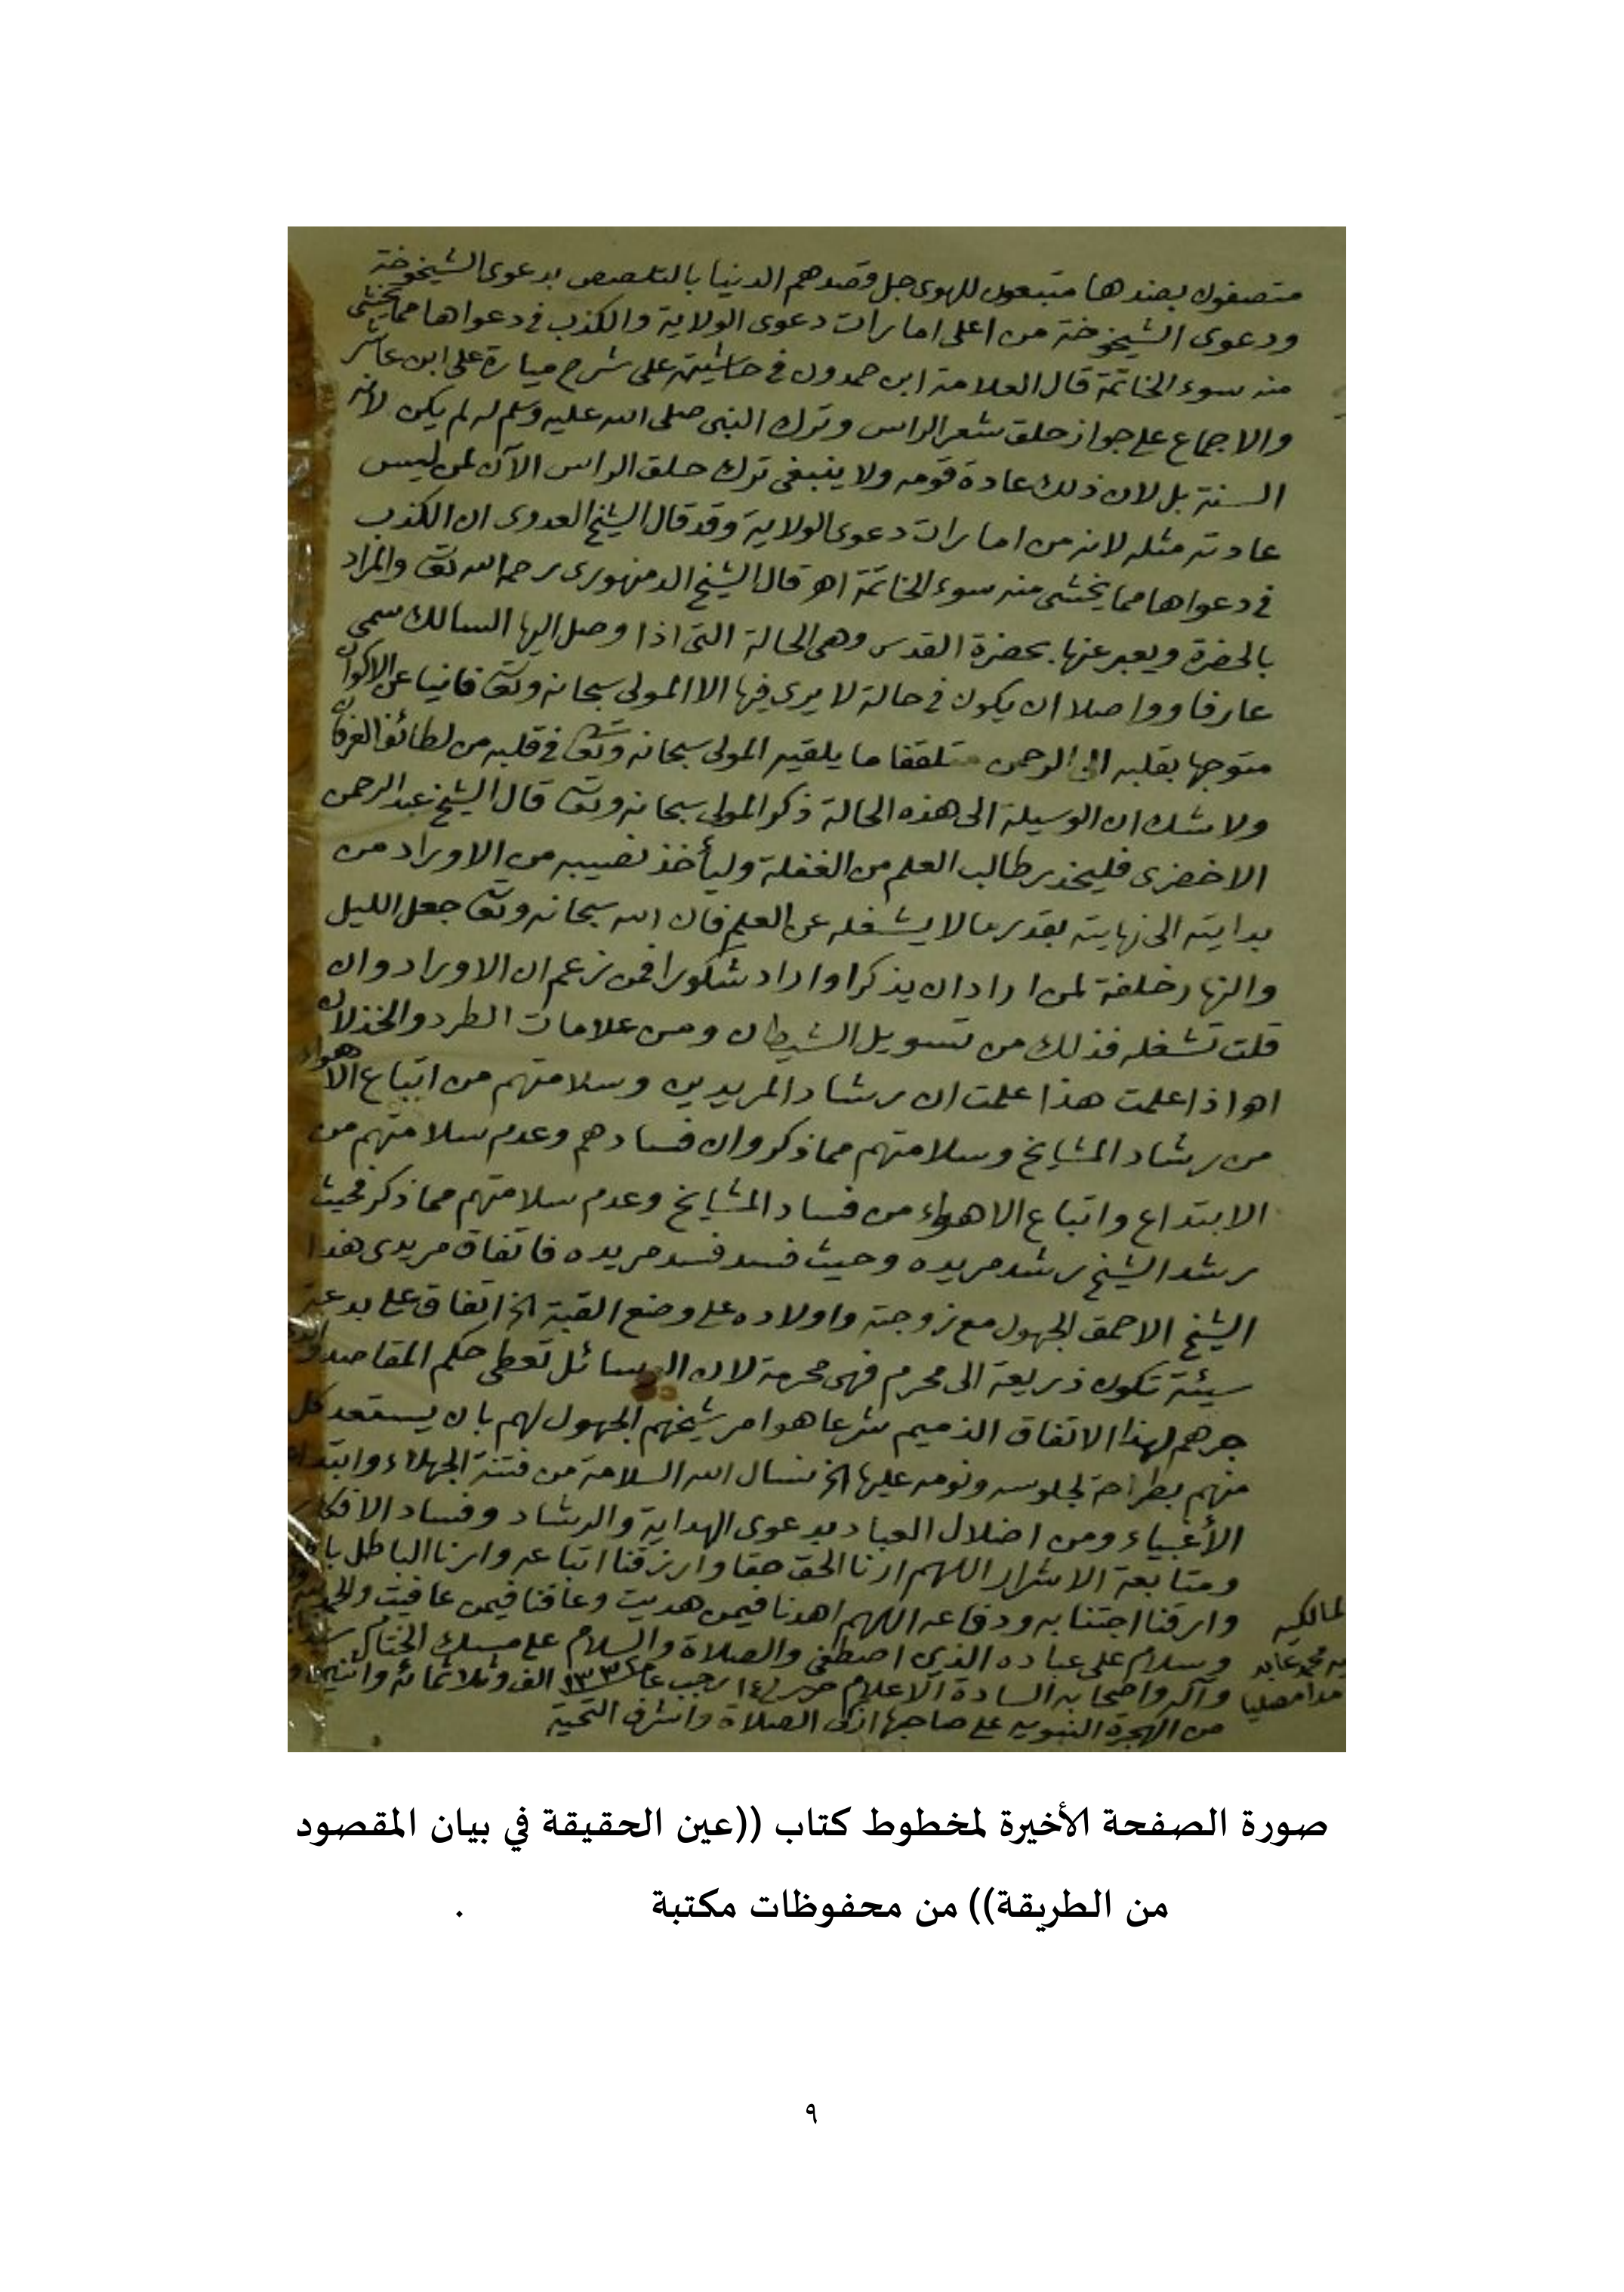 متصفون بضدها متبعون للهوى جل قصدهم الدنيا بالتلصص بدعوى الشيخوخة
ودعوى الشيخوخة من اعلى امارات دعوى الولاية والكذب فى دعواها مما يخشى
منه سوء الخاتمة قال العلامة ابن حمدون فى حاشيته على شرح ميارة على ابن عاشر
والاجماع على جواز حلق شعر الراس وترك النبى صلى الله عليه وسلم له لم يكن لانه
السنة بل لان ذلك عادة قومه ولا ينبغى ترك حلق الراس الآن لمن ليس
عادته مثله لانه من امارات دعوى الولاية وقد قال الشيخ العدوى ان الكذب
فى دعواها مما يخشى منه سوء الخاتمة اهـ قال الشيخ الدمنهورى رحمه الله تعالى والمراد
بالحضرة ويعبر عنها بحضرة القدس وهى الحالة التى اذا وصل اليها السالك سمى
عارفا وواصلا ان يكون فى حالة لا يرى فيها الا المولى سبحانه وتعالى فانيا عن الاكوان
متوجها بقلبه الى الرحمن متلقفا ما يلقيه المولى سبحانه وتعالى فى قلبه من لطائف العرفان
ولا شك ان الوسيلة الى هذه الحالة ذكر المولى سبحانه وتعالى قال الشيخ عبد الرحمن
الاخضرى فليحذر طالب العلم من الغفلة وليأخذ نصيبه من الاوراد من
بدايته الى نهايته بقدر ما لا يشغله عن العلم فان الله سبحانه وتعالى جعل الليل
والنهار خلفة لمن اراد ان يذكر او اراد شكورا فمن زعم ان الاوراد وان
قلت تشغله فذلك من تسويل الشيطان ومن علامات الطرد والخذلان
اهـ واذا علمت هذا علمت ان رشاد المريدين وسلامتهم من اتباع الاهواء
من رشاد المشايخ وسلامتهم مما ذكر وان فسادهم وعدم سلامتهم من
الابتداع واتباع الاهواء من فساد المشايخ وعدم سلامتهم مما ذكر فحيث
رشد الشيخ رشد مريده وحيث فسد فسد مريده فاتفاق مريدى هذا
الشيخ الاحمق الجهول مع زوجته واولاده على وضع القبة الخ اتفاق على بدعة
سيئة تكون ذريعة الى محرم فهى محرمة لان الوسائل تعطى حكم المقاصد
جرهم لهذا الاتفاق الذميم شرعا هو امر شيخهم الجهول لهم بان يستعد كل
منهم بطراحة لجلوسه ونومه عليها الخ نسال الله السلامة من فتنة الجهلاء وابتداع
الأغبياء ومن اضلال العباد بدعوى الهداية والرشاد وفساد الافكار
ومتابعة الاشرار اللهم ارنا الحق حقا وارزقنا اتباعه وارنا الباطل باطلا
وارزقنا اجتنابه ودفاعه اللهم اهدنا فيمن هديت وعافنا فيمن عافيت والحمد لله
وسلام على عباده الذين اصطفى والصلاة والسلام على مسك الختام
وآله واصحابه السادة الاعلام ١٤ رجب عام ١٣٣٢ الف وثلاثمائة واثنين و
من الهجرة النبويه على صاحبها ازكى الصلاة واشرف التحية
لمالكيه
محمد عابد
مصليا
صورة الصفحة الأخيرة لمخطوط كتاب ((عين الحقيقة في بيان المقصود
من الطريقة)) من محفوظات مكتبة .
٩